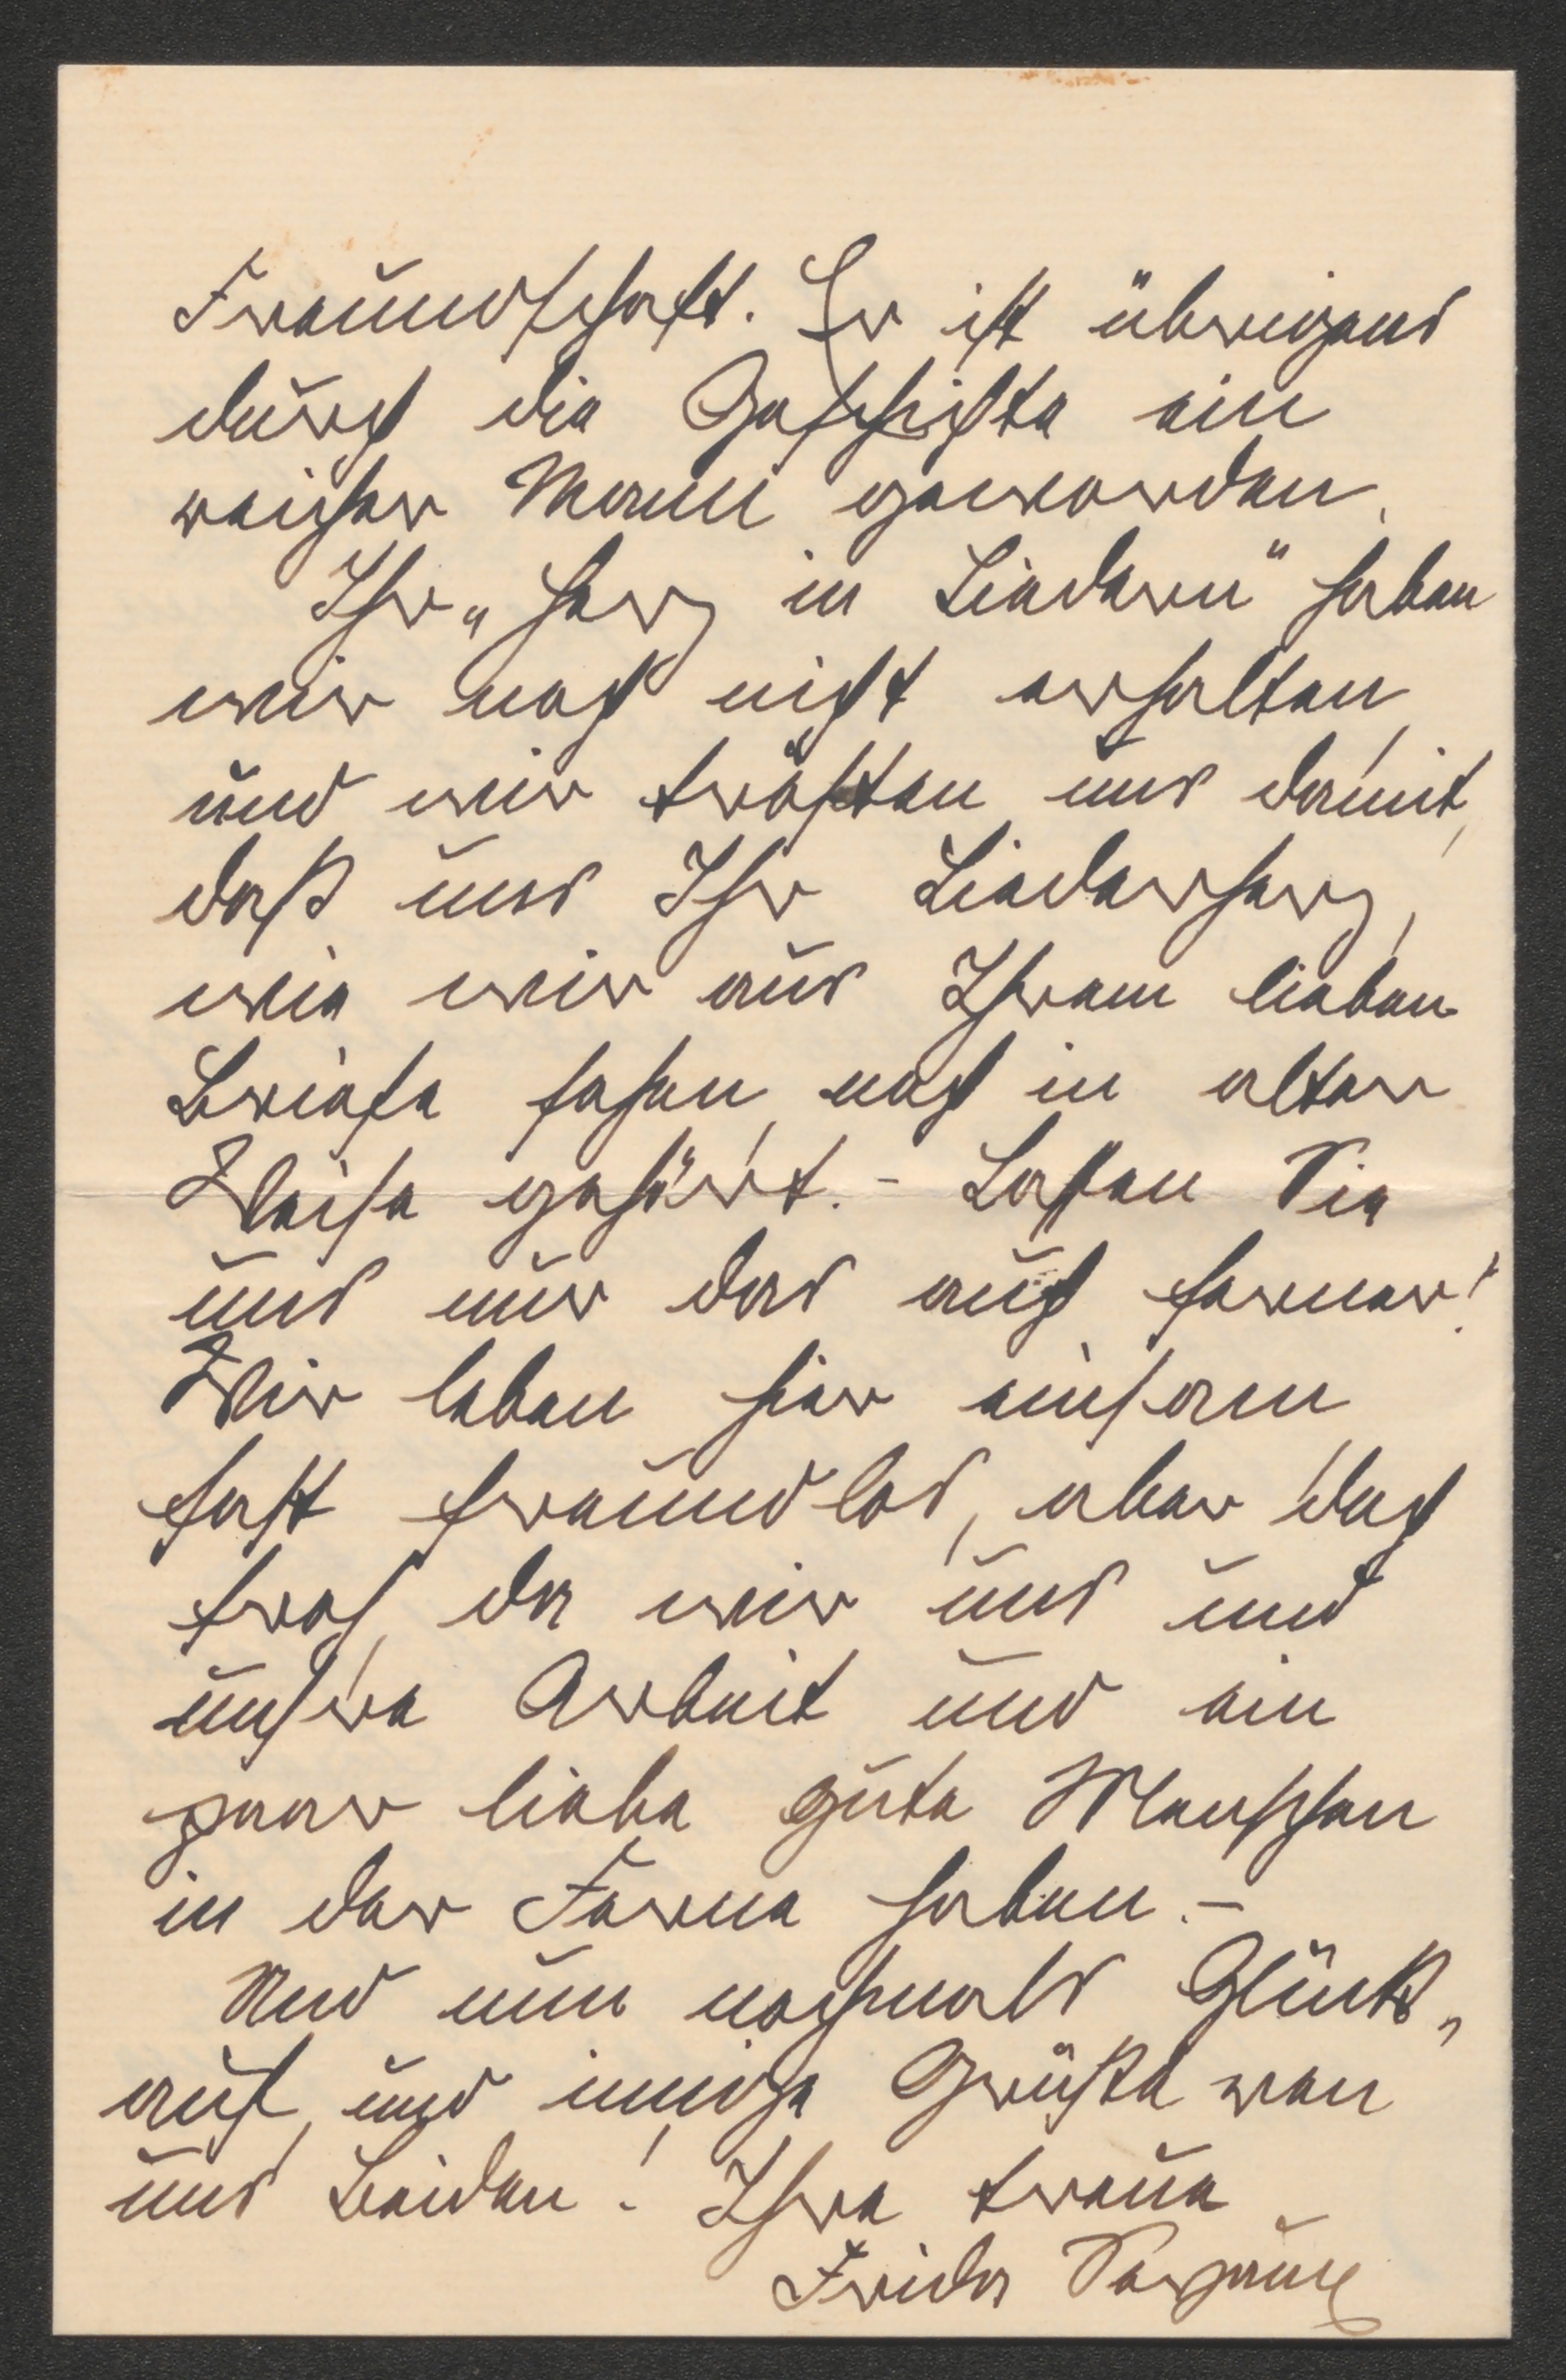 Freundschaft. Er ist übrigens
durch die Geschichte ein
reicher Mann geworden.
Ihr „Herz in Liedern" haben
wir noch nicht erhalten,
und wir trösten uns damit,
daß uns Ihr Liederherz,
wie wir aus Ihrem lieben
Briefe sehen, noch in alter
Weise gehört. - Lassen Sie
uns nur das auch ferner!
Wir leben hier einsam,
fast freundlos, aber doch
froh, da wir uns und
unsre Arbeit und ein
paar liebe gute Menschen
in der Ferne haben. -
Und nun nochmals Glück„
auf, und innige Grüße von
uns Beiden! Ihre treue
Frida